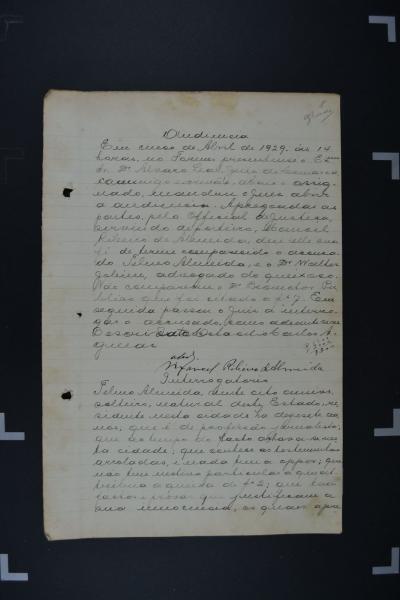 Audiencia
Em cinco de Abril de 1929, ás 14
horas, no Forum, presente o Exmo
Sr. Dr. Alvaro Leal, Juiz de
commigo escrivão, abaixo assig-
nado, mandou o Juiz abrir
a audiencia. Apregoadas as
partes, pelo Official de Justiça,
servindo de porteiro, Manoel
Ribeiro de Almeida, deu elle sua
fé de terem comparecido o accusa-
do Telmo Almeida, e o Dr. Walter
Jobim, advogado do queixoso.
Não compareceu o Dr. Promotor Pu-
blico que foi citado a fs 7. Em
seguida passou o Juiz a interro-
gar o accusado, como adeante
Manoel Ribeiro d'Almeida
Interrogatorio
Telmo Almeida, vinte e oito annos,
solteiro, natural deste Estado, re-
sidente nesta cidade ha desesete an-
nos; que é de profissão jornalista;
que ao tempo do facto achava-se nes-
ta cidade; que conhece as testemunhas
arroladas, e nada tem a oppor; que
não tem motivo particular a que at-
tribua a queixa de fs 2; que
que justificam a
sua innocencia, os quaes